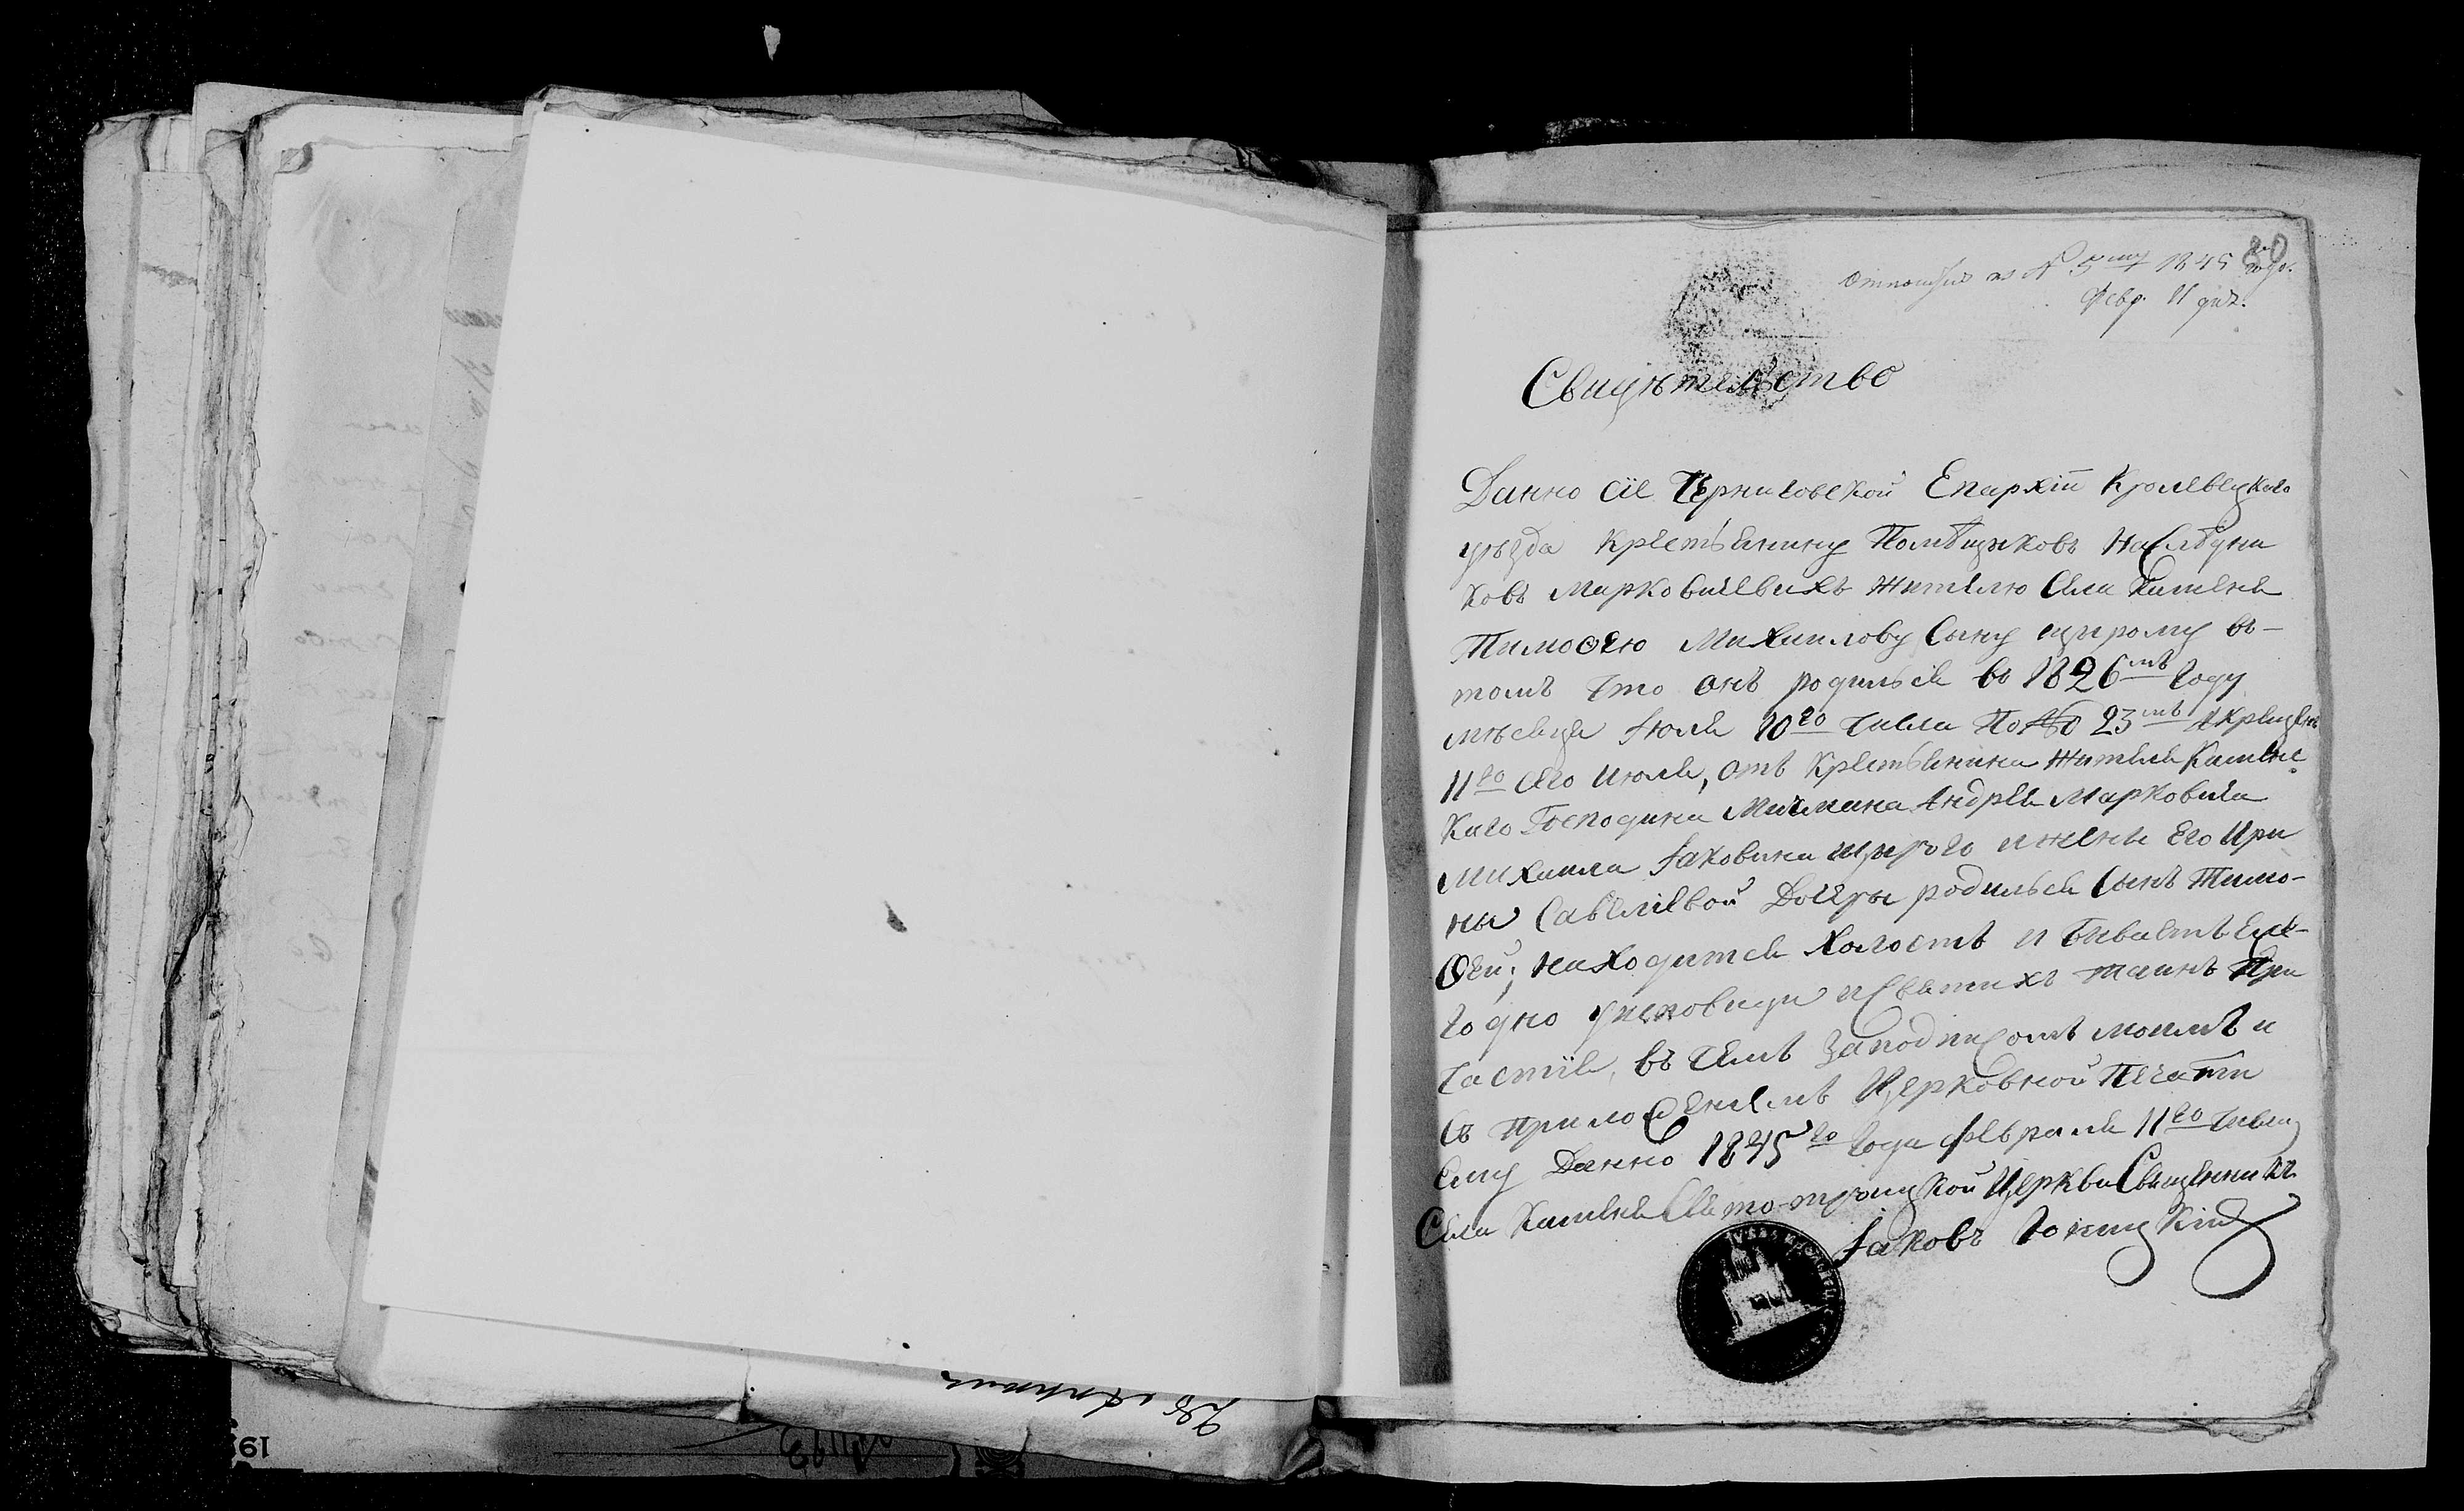 80
№ 5 му 1845 года.
Февр. 11 дня.
Свидѣтельство
Данно сіе Черниговской Епархіи Кролевецкаго
уѣзда крестьянину Помѣщиковъ Наслѣдни
ковъ Марковичевыхъ жителю села Каменя
Тимоѳею Михаилову сыну Щирому въ-
томъ что онъ родился въ 1826мъ году
мѣсяца Іюля 10го числа По № 23мъ а крещенъ
11го сего июля, отъ крестьянина жителя Каменс
каго Господина Мичмана Андрея Марковича
Михаила Іаковина Щирого и жены Его Ири
ны Савелиевой Дочеры родился сынъ Тимо-
ѳей; находится холостъ и бываетъ Еже-
годно уисповиди и святихъ таинъ при
частія, въ чемъ заподписомъ моимъ и
съ приложениемъ Церковной Печати
ему Данно 1845го года февраля 11го числа
Села Каменя Свято-троицкой Церкви Священникъ
Іаковъ